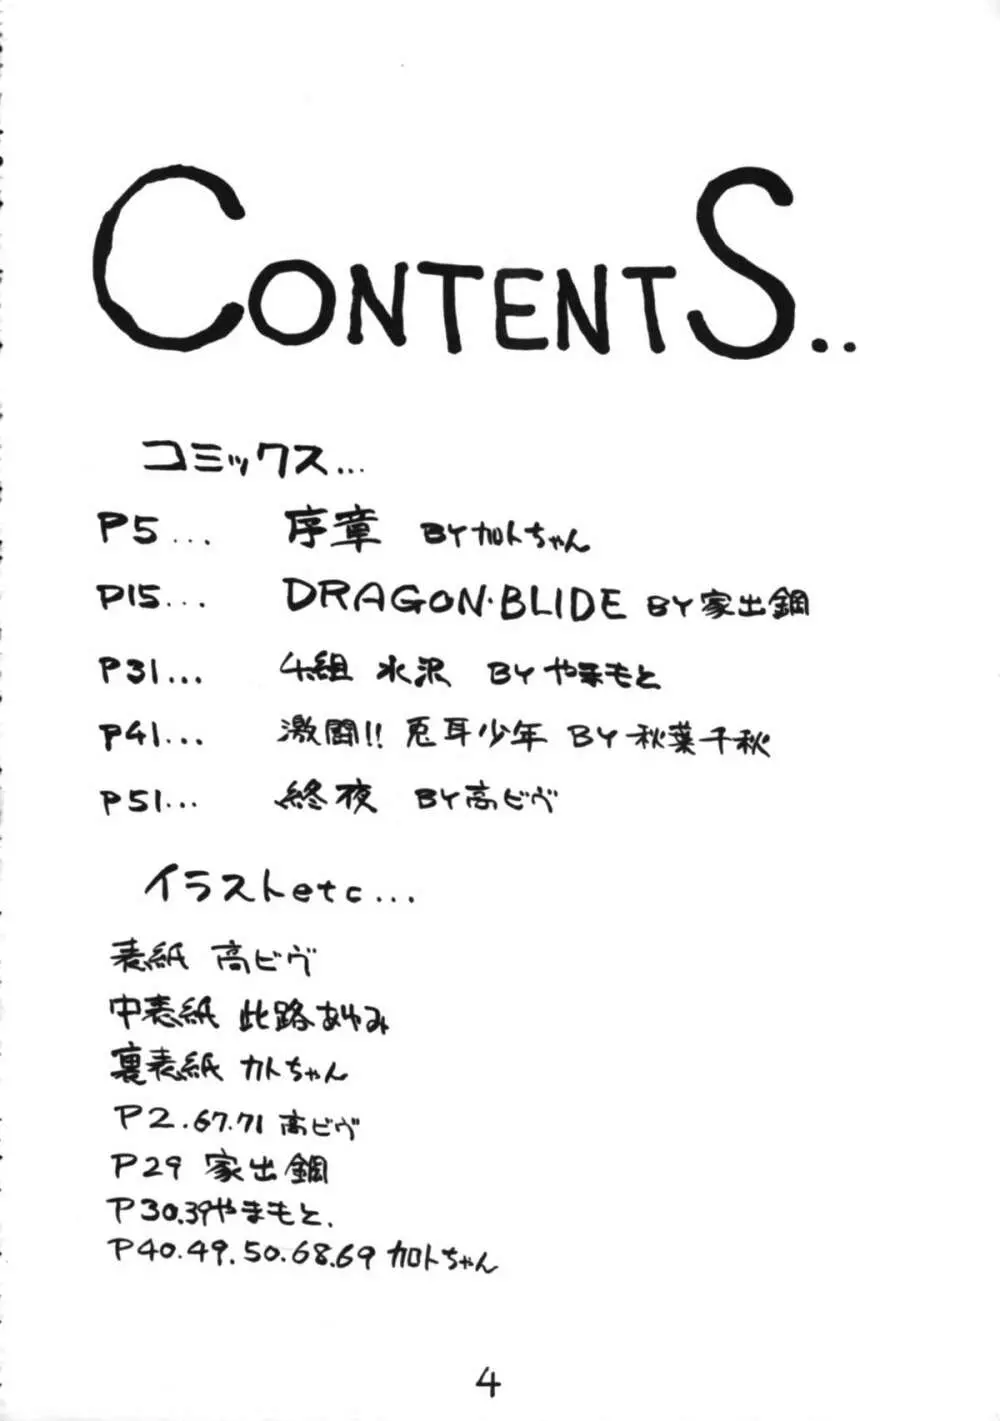 CONTENTS..
コミックス...
P5... 序章 BY加トちゃん
P15... DRAGON・BLIDE BY家出鋼
P31... 4組 水沢 BYやまもと
P41... 激闘!! 兎耳少年 BY秋葉千秋
P51... 終夜 BY高ビヴ
イラストetc...
表紙 高ビヴ
中表紙 此路あゆみ
裏表紙 カトちゃん
P2.67.71 高ビヴ
P29 家出鋼
P30.39やまもと.
P40.49.50.68.69 加トちゃん
4